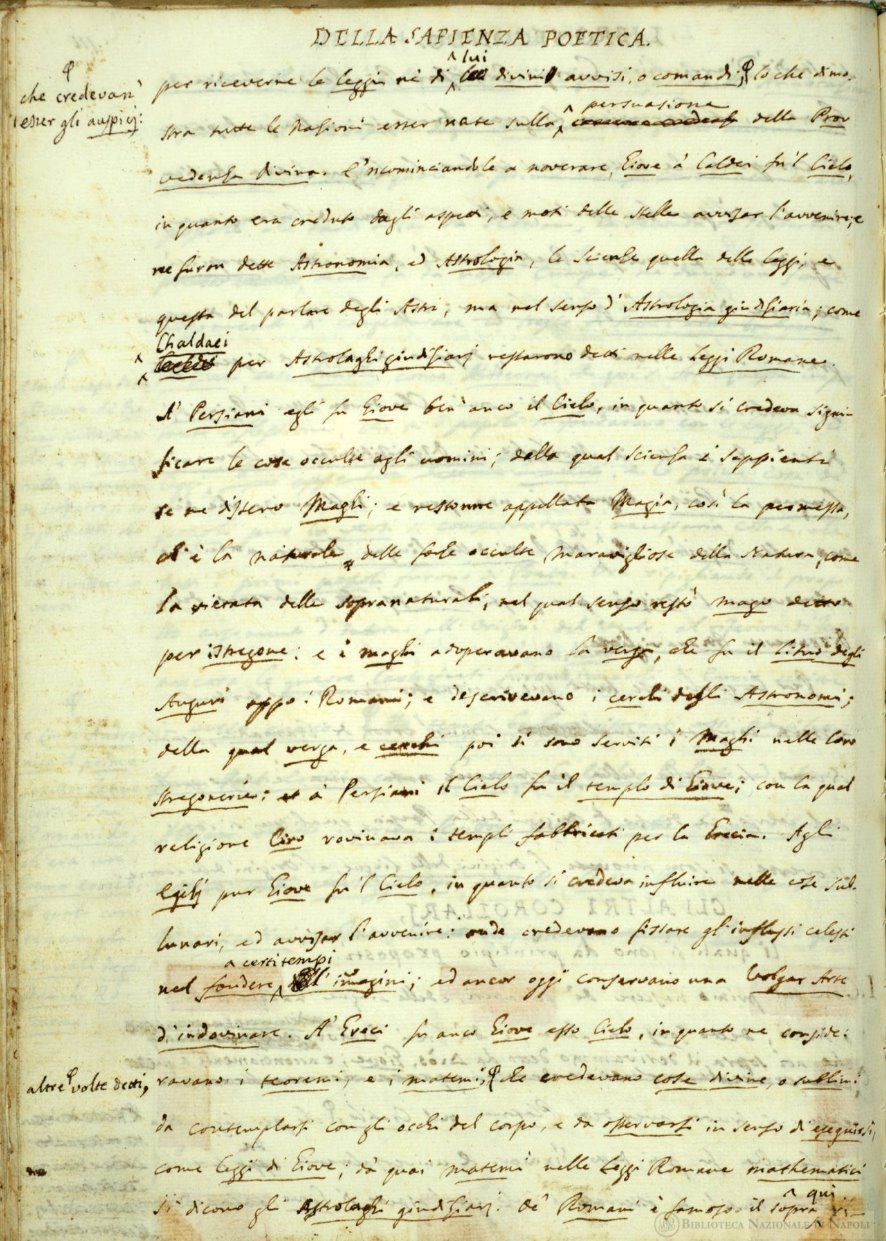 DELLA SAPIENZA POETICA.
per riceverne le leggi nè di lui divini avvisi, o comandi; lo che dimo-
che credevan'
esser gli auspicj:
stra tutte le Nazioni esser nate sulla persuasione della Prov
vedenza divina. E 'ncominciandole a noverare, Giove à Caldei fu 'l Cielo,
in quanto era creduto dagli aspetti, e moti delle stelle avvisar l'avvenire; e
ne furon dette Astronomia, ed Astrologia, le scienze quella delle leggi, e
questa del parlare degli Astri, ma nel senso d'Astrologia giudiziaria; come
Chaldaei
per Astrolaghi giudiziarj restarono detti nelle Leggi Romane.
A' Persiani egli fu Giove ben' anco il Cielo, in quanto si credeva signi-
ficare le cose occulte agli uomini; della qual scienza i sappienti
se ne dissero Maghi; e restonne appellata Magia, così la permessa,
ch' è la naturale delle forze occulte maravigliose della Natura, come
la vietata delle sopranaturali, nel qual senso restò mago detto
per istregone: e i maghi adoperavano la verga, che fu il lituo degli
Auguri appo i Romani; e descrivevano i cerchi degli Astronomi;
della qual verga, e cerchi poi si sono serviti i Maghi nelle loro
stregonerie: à Persiani il Cielo fu il templo di Giove; con la qual
religione Ciro rovinava i templi fabbricati per la Grecia. Agli
Egizj pur Giove fu 'l Cielo, in quanto si credeva influire nelle cose sul-
lunari, ed avvisar l'avvenire: onde credevano fissare gl'influssi celesti
a certi tempi
nel fondere l'imagini; ed ancor oggi conservano una Volgar Arte
d'indovinare. A' Greci fu anco Giove esso Cielo, in quanto ne conside-
ravano i teoremi, e i matemi, che credevano cose divine, o sublimi
altre volte detti,
da contemplarsi con gli occhi del corpo, e da osservarsi in senso di eseguirsi,
come leggi di Giove; da quai matemi nelle Leggi Romane mathematici
si dicono gli Astrolaghi giudiziarj. De' Romani è famoso il sopra qui ri-
BIBLIOTECA NAZIONALE DI NAPOLI